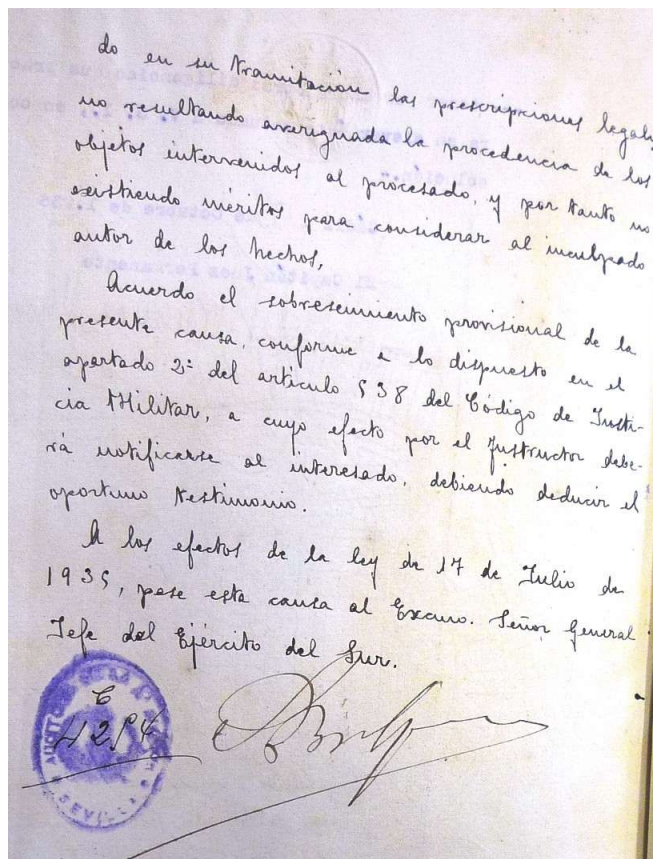 do en su tramitacion las prescripciones legales,
no resultando averiguada la procedencia de los
objetos intervenidos al procesado, y por tanto no
existiendo méritos para considerar al inculpado
autor de los hechos,
Acuerdo el sobreseimiento provisional de la
presente causa, conforme a lo dispuesto en el
apartado 2º del artículo 538 del Código de Justi-
cia Militar, a cuyo efecto por el Instructor debe-
rá notificarse al interesado, debiendo deducir el
oportuno testimonio.
A los efectos de la ley de 17 de Julio de
1935, pase esta causa al Excmo. Señor General
Jefe del Ejército del Sur.
SEVILLA